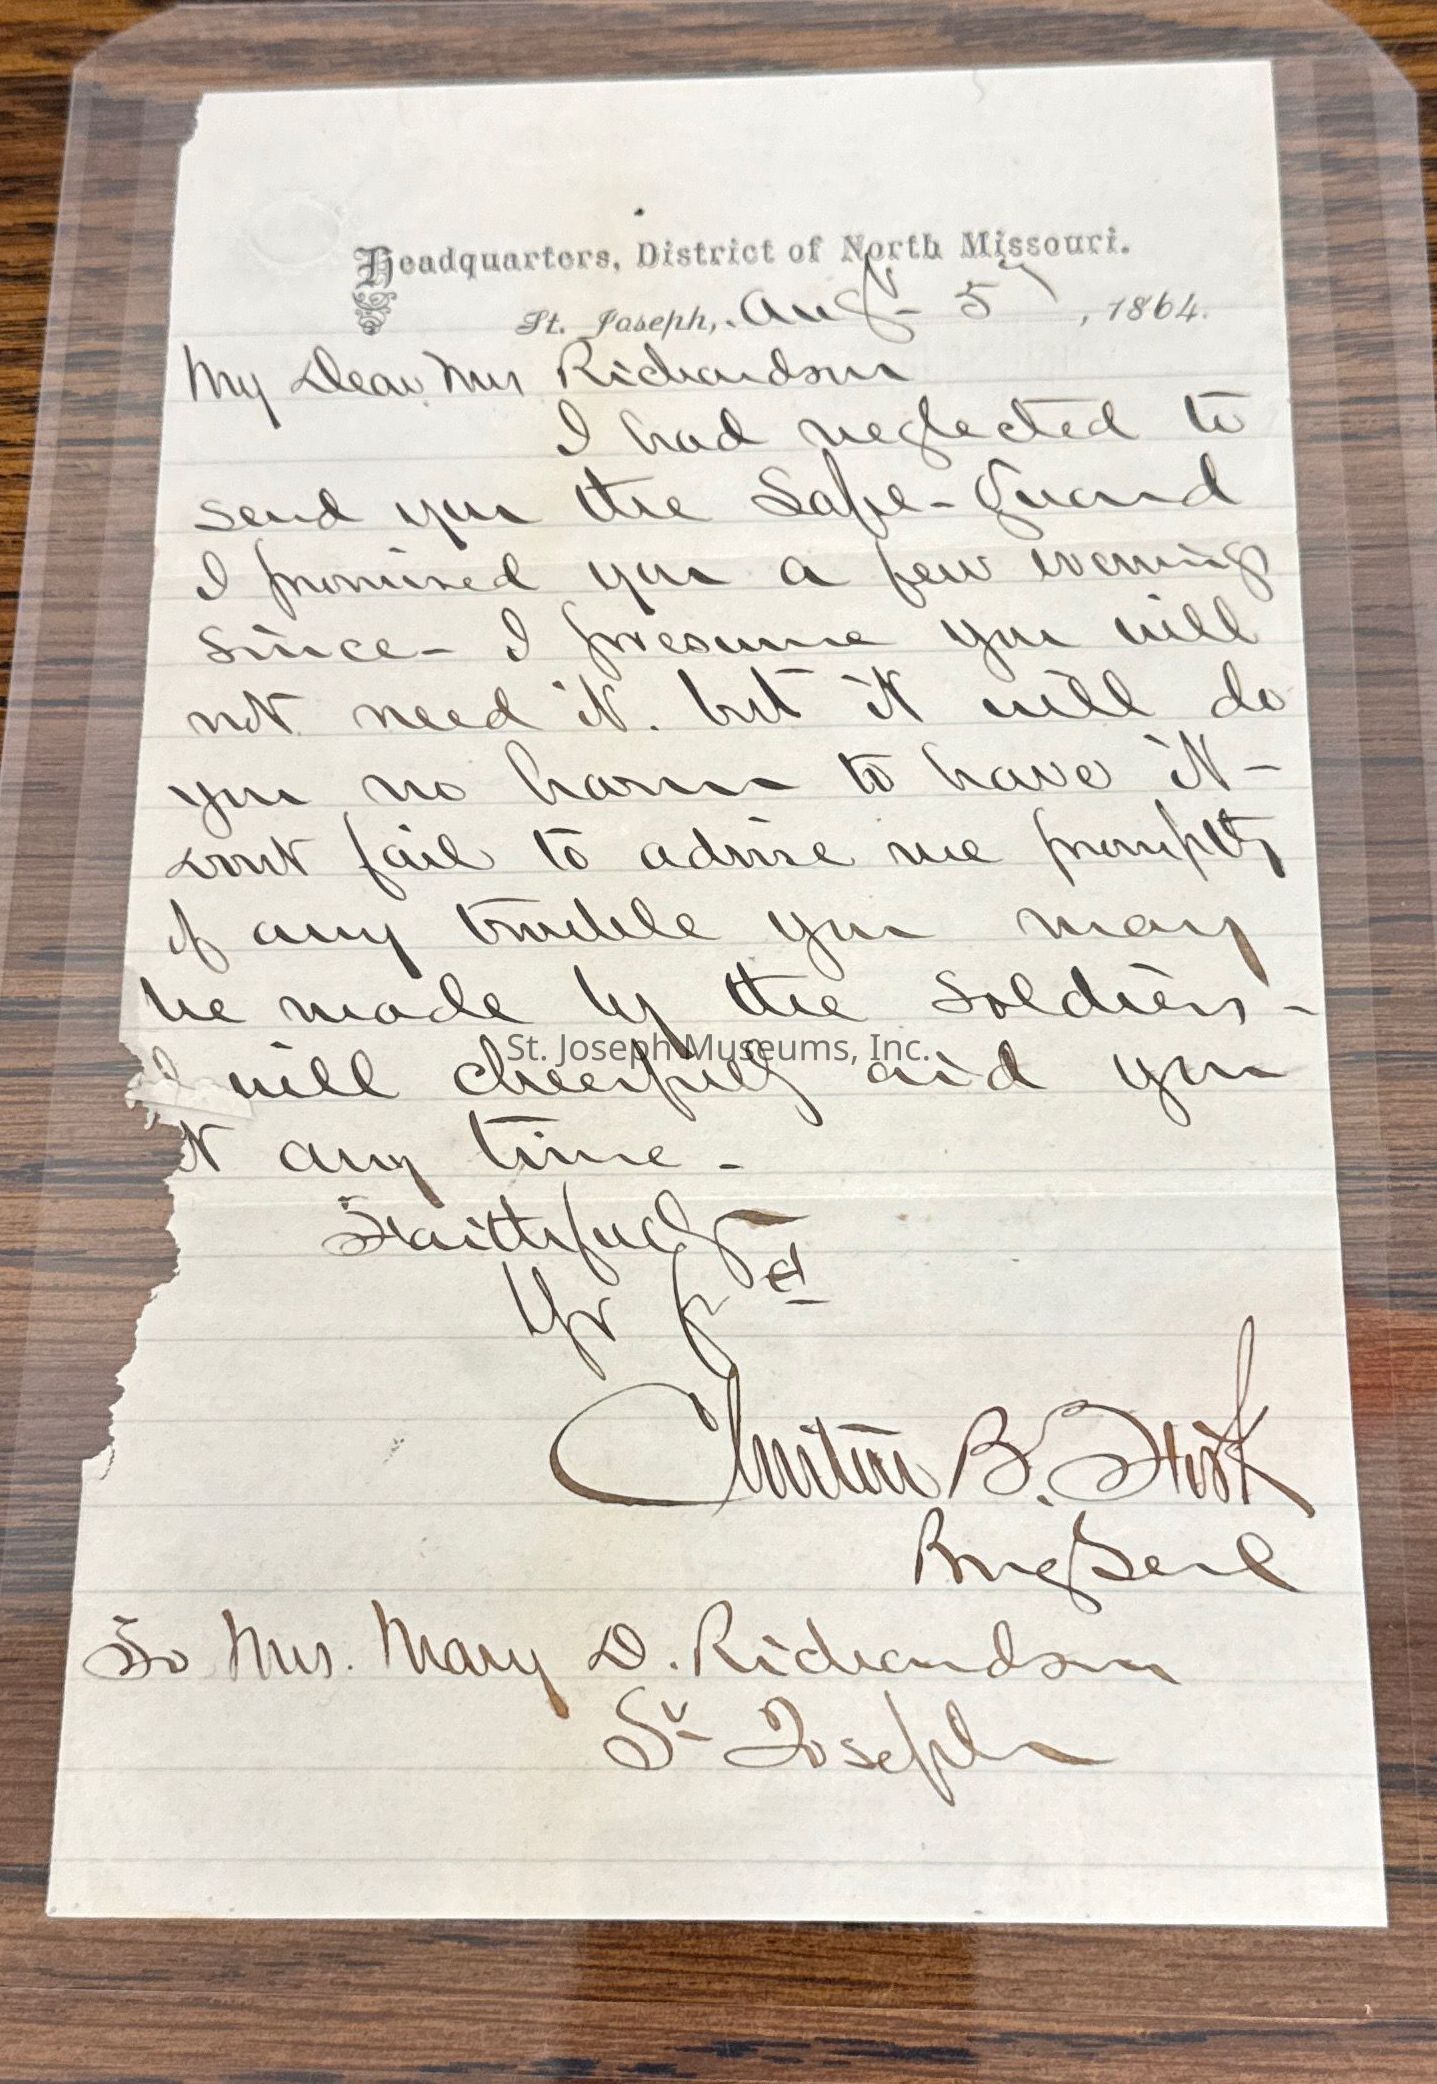 Headquarters, District of North Missouri.
St. Joseph, Aug- 5", 1864.
My Dear Mrs Richardson
I had neglected to
send you the Safe-Guard
I promised you a few evenings
since- I presume you will
not need it. but it will do
you no harm to have it-
Dont fail to advise me promptly
if any trouble you may
be made by the soldiers-
I will cheerfully aid you
t any time-
Faithfully
Yr frd
Clinton B. Fisk
Brig Genl
To Mrs. Mary D. Richardson
St Joseph
St. Joseph Museums, Inc.